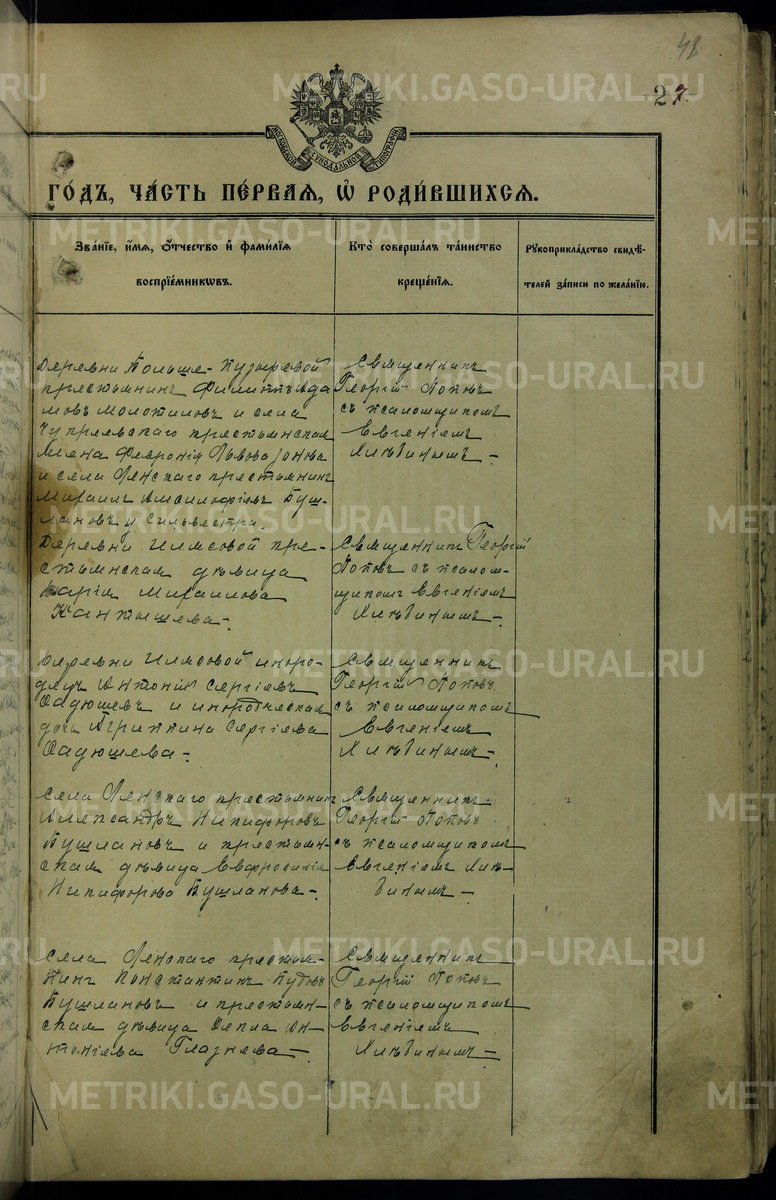 48
27
МОСКОВСКОЙ СѴНОДАЛЬНОЙ ТИПОГРАФІИ
ГО́ДЪ, ЧА́СТЬ ПЕ́РВАЯ, Ѡ҆ РОДИ́ВШИХСЯ.
Зва́ніе, и҆́мя, ѻ҆́тчество и҆ фами́лїя
воспрїе́мниковъ.
Кто̀ соверша́лъ та́инство
креще́нїя.
Рукоприкла́дство свидѣ́-
телей за́писи по жела́нїю.
Деревни Больше-Пузыревой
крестьянинъ Филиппъ Ада
мовъ Молотиловъ и села
крестьянская
жена Феврониія Львова
и села Ленскаго крестьянинъ
Михаилъ Буш-
лановъ у Сильвестра.
Священникъ
Георгій Поповъ
съ псаломщикомъ
Евгеніемъ
Хлѣбинымъ -
Деревни Илясовой кре-
стьянская дѣвица
Марія Михаилова
Кантышева -
Священникъ Георгій
Поповъ съ псалом-
щикомъ Евгеніемъ
Хлѣбинымъ -
Деревни Илясовой иноро-
децъ Антоній Сергіевъ
Садюшевъ и инородческая
дочь Агриппина Сергіева
Садюшева -
Священникъ
Георгій Поповъ
съ псаломщикомъ
Евгеніемъ
Хлѣбинымъ -
Села Ленскаго крестьянинъ
Александръ Никифоровъ
Бушлановъ и крестьян-
ская дѣвица Евфросинія
Никифорова Бушланова -
Священникъ
Георгій Поповъ
съ псаломщикомъ
Евгеніемъ Хлѣ-
бинымъ -
Села Ленскаго крестья-
нинъ Константинъ
Бушлановъ и крестьян-
ская дѣвица Фекла Ан-
тоніева Глазнева -
Священникъ
Георгій Поповъ
съ псаломщикомъ
Евгеніемъ
Хлѣбинымъ -
METRIKI.GASO-URAL.RU